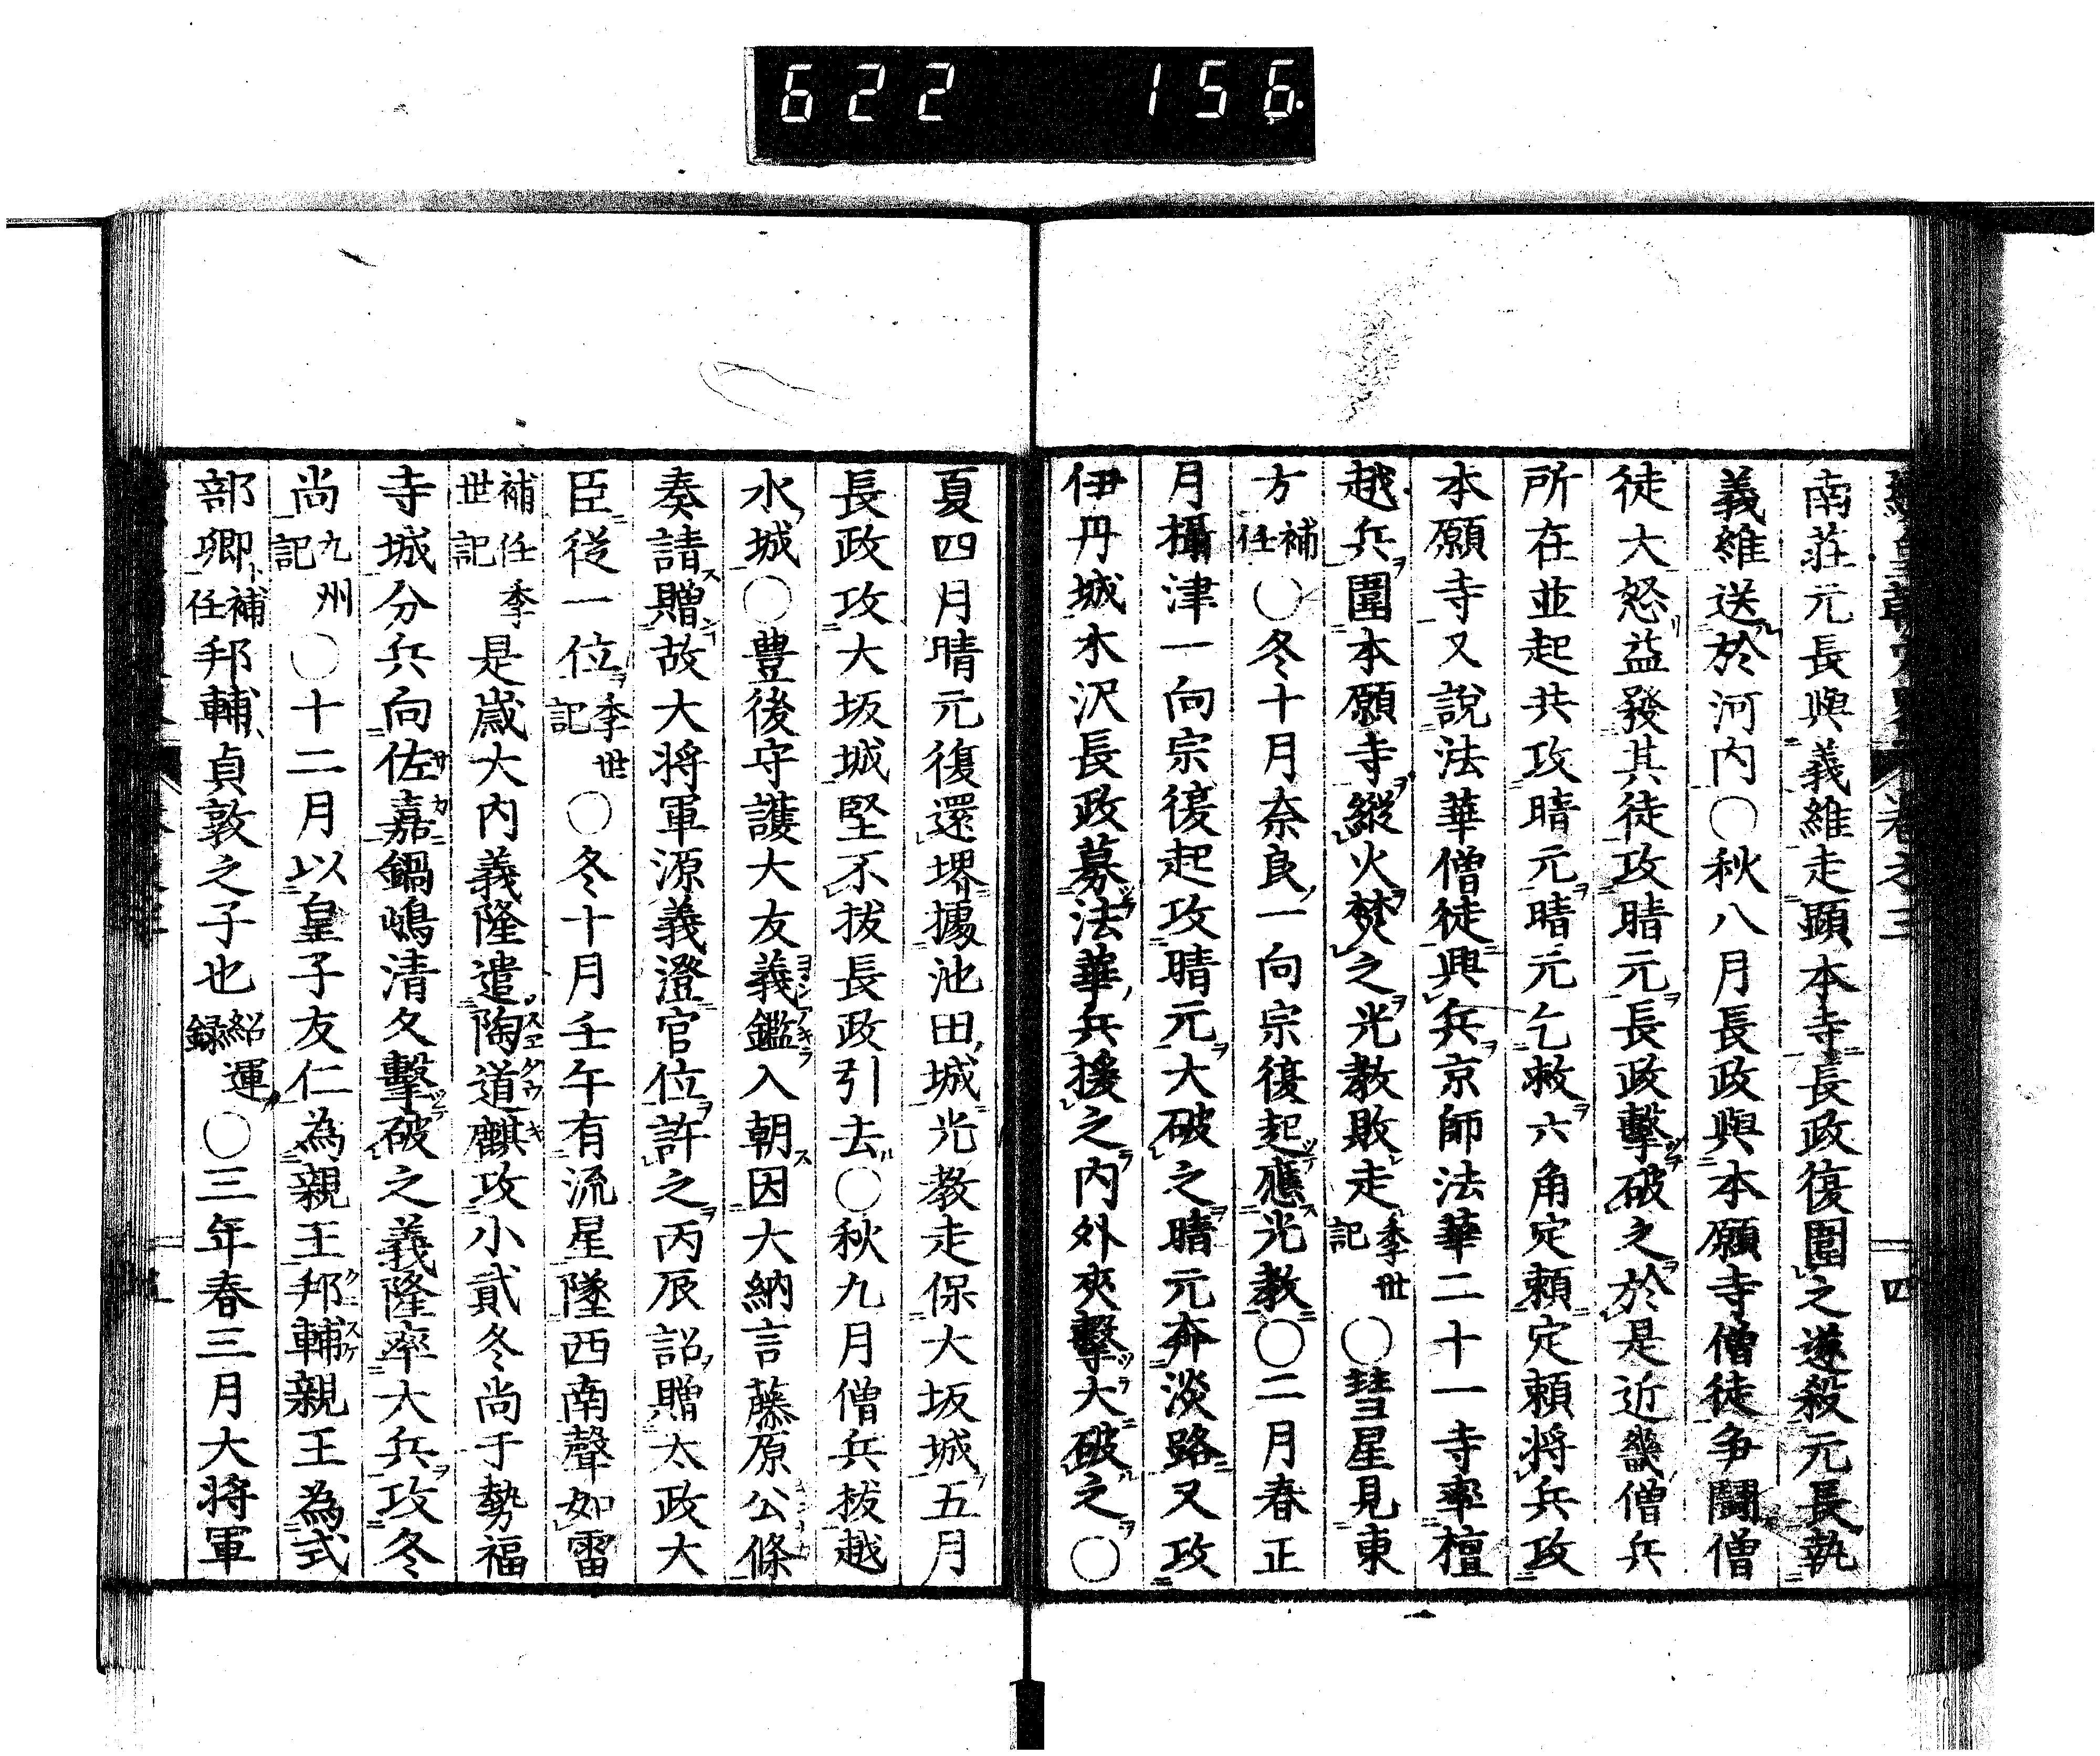 622 156
南莊元長與義維走顕本寺長政復圍之遂殺元長執
義維送於河内〇秋八月長政與本願寺僧徒争闘僧
徒大怒益發其徒攻晴元長政擊破之於是近畿僧兵
所在並起共攻晴元晴元乞救六角定頼定頼将兵攻
本願寺又説法華僧徒興兵京師法華二十一寺率檀
越兵圍本願寺縱火焚之光教敗走季世記〇彗星見東
方補任〇冬十月奈良一向宗復起應光教〇二月春正
月攝津一向宗復起攻晴元大破之晴元奔淡路又攻
伊丹城木沢長政募法華兵援之内外夾擊大破之〇
夏四月晴元復還堺據池田城光教走保大坂城五月
長政攻大坂城堅不拔長政引去〇秋九月僧兵拔越
水城〇豊後守護大友義鑑入朝因大納言藤原公條
奏請贈故大将軍源義澄官位許之丙辰詔贈太政大
臣従一位季世記〇冬十月壬午有流星墜西南聲如雷
補任季世記是歳大内義隆遣陶道麒攻小貳冬尚于勢福
寺城分兵向佐嘉鍋嶋清久擊破之義隆率大兵攻冬
尚九州記〇十二月以皇子友仁為親王邦輔親王為式
部卿補任邦輔貞敦之子也紹運録〇三年春三月大将軍